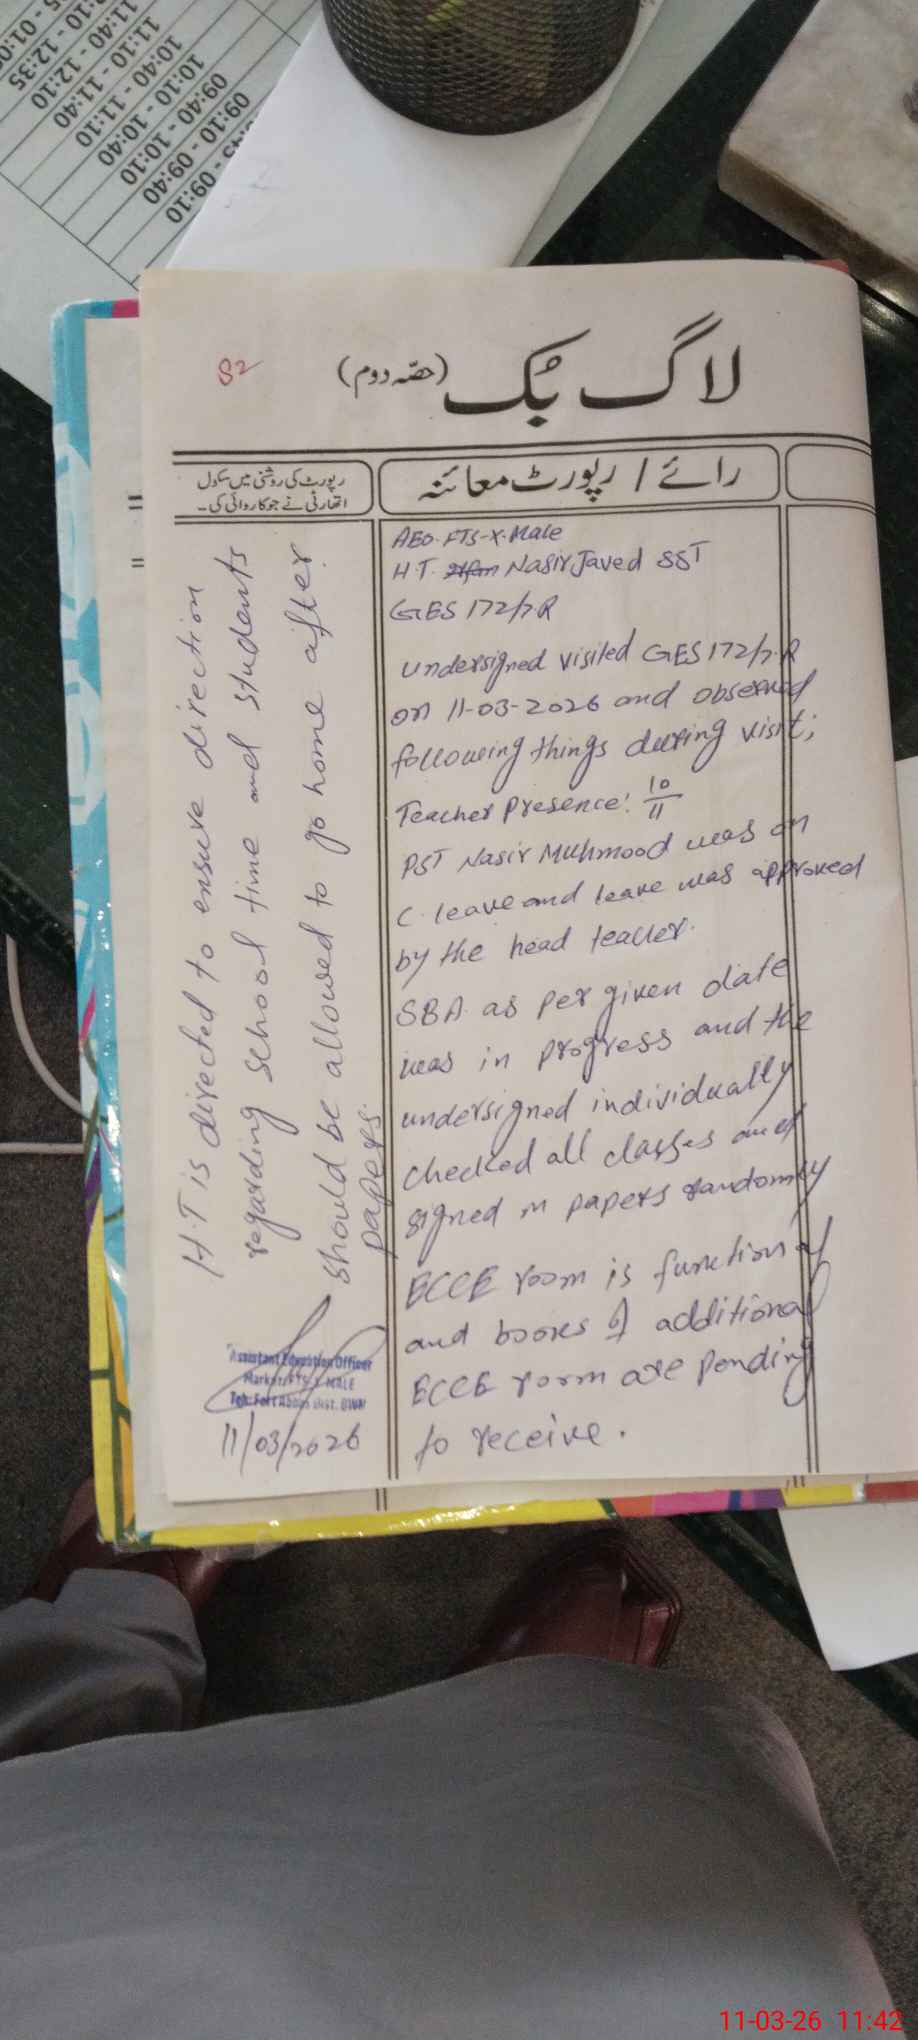 01:0
12:10 - 12:35
11:40 - 12:10
11:10 - 11:40
10:40 - 11:10
10:10 - 10:40
09:40 - 10:10
09:10 - 09:40
:45 - 09:10
82
لاگ بُک (حصّہ دوم)
رائے / رپورٹ معائنہ
رپورٹ کی روشنی میں سکول
اتھارٹی نے جو کاروائی کی۔
AEO-FTS-X-Male
H.T. Nasir Javed SST
GES 172/7.R
undersigned visited GES 172/7.R
on 11-03-2026 and observed
following things during visit;
Teacher Presence: 10/11
PST Nasir Muhmood was on
C. leave and leave was approved
by the head teacher.
SBA as per given date
was in progress and the
undersigned individually
checked all classes and
signed on papers randomly
ECCE room is functional
and books of additional
ECCE room are pending
to receive.
H.T is directed to ensure direction
regarding school time and students
should be allowed to go home after
papers.
Assistant Education Officer
Markaz FTS-X-MALE
Teh. Fort Abbas Dist. BWN
11/03/2026
11-03-26 11:42